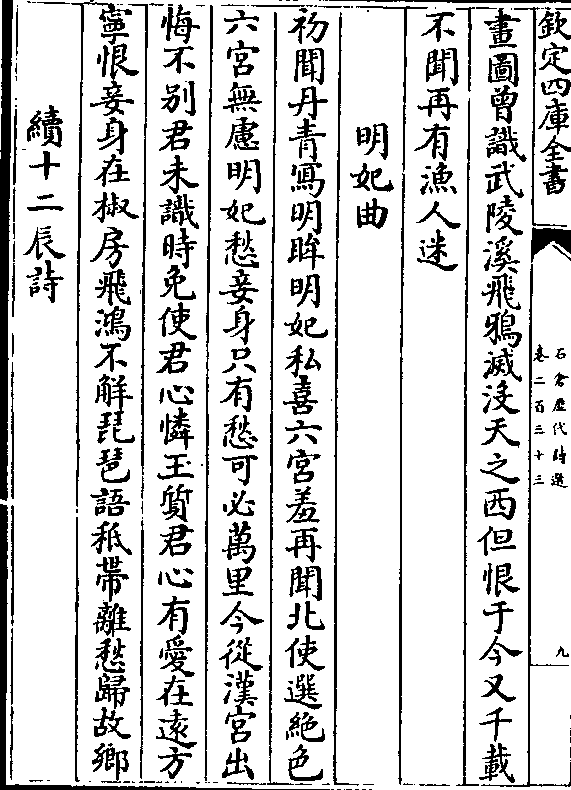 欽定四庫全書
石倉歷代詩選
卷二百三十三
九
畫圖曾識武陵溪飛鴉滅沒天之西但恨于今又千載
不聞再有漁人迷
明妃曲
初聞丹青寫明眸明妃私喜六宮羞再聞北使選絶色
六宮無慮明妃愁妾身只有愁可必萬里今從漢宮出
悔不别君未識時免使君心憐玉質君心有愛在遠方
寧恨妾身在椒房飛鴻不解琵琶語秪帶離愁歸故鄉
續十二辰詩